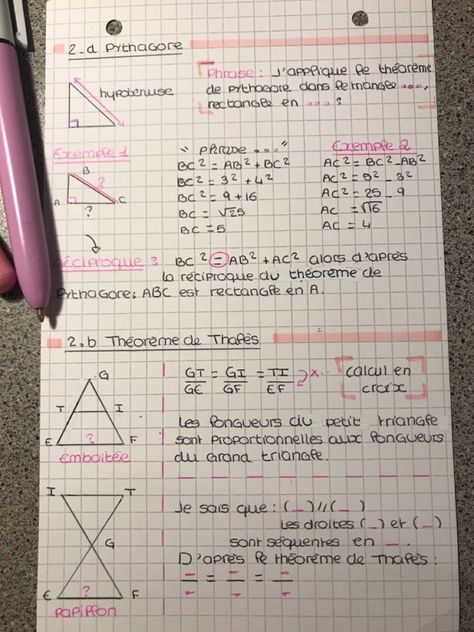 2.a Pythagore
hypoténuse
Phrase : J'applique le théorème
de Pythagore dans le triangle ....,
rectangle en .... ?
Exemple 1
B
?
A
C
?
" Phrase .... "
BC² = AB² + BC²
BC² = 3² + 4²
BC² = 9 + 16
BC = √25
BC = 5
Exemple 2
AC² = BC² - AB²
AC² = 5² - 3²
AC² = 25 - 9
AC = √16
AC = 4
Réciproque : BC² = AB² + AC² alors d'après
la réciproque du théorème de
Pythagore, ABC est rectangle en A.
2.b Théorème de Thalès
G
T
I
E
?
F
Emboîtée
GT/GE = GI/GF = TI/EF
×.
calcul en
croix
Les longueurs du petit triangle
sont proportionnelles aux longueurs
du grand triangle.
I
T
G
E
?
F
Papillon
Je sais que : (_)//(_)
Les droites (_) et (_)
sont séquentes en _.
D'après le théorème de Thalès :
_/_ = _/_ = _/_